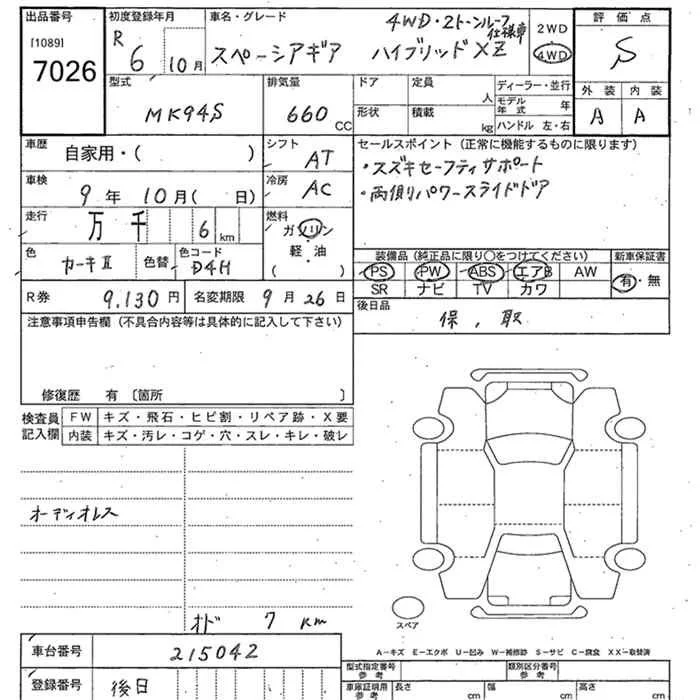 出品番号
[1089]
7026
初度登録年月
R 6 10月
車名・グレード
4WD・2トーンルーフ仕様車
スペーシアギア ハイブリッドXZ
2WD
4WD
評価点
S
外装 内装
A A
型式
MK94S
排気量
660 CC
ドア
形状
定員 人
積載 kg
ディーラー・並行
モデル年式 年
ハンドル 左・右
車歴 自家用・( )
シフト AT
車検 9年 10月( 日)
冷房 AC
走行 万 千 6 km
燃料 ガソリン
軽・油
( )
色 カーキⅡ
色替
色コード D4H
R券 9,130円
名変期限 9月26日
セールスポイント (正常に機能するものに限ります)
・スズキセーフティサポート
・両側パワースライドドア
装備品 (純正品に限り○をつけてください)
PS PW ABS エアB AW
SR ナビ TV カワ
新車保証書
有・無
後日品
保、取
注意事項申告欄 (不具合内容等は具体的に記入して下さい)
修復歴 有 〔箇所 〕
検査員記入欄
FW キズ・飛石・ヒビ割・リペア跡・X要
内装 キズ・汚レ・コゲ・穴・スレ・キレ・破レ
オーディオレス
オド 7 km
スペア
A−キズ E−エクボ U−凹み W−補修跡 S−サビ C−腐食 XX−取替済
車台番号 215042
登録番号 後日
型式指定番号 参考
類別区分番号 参考
車庫証明用 参考
長さ cm 幅 cm 高さ cm